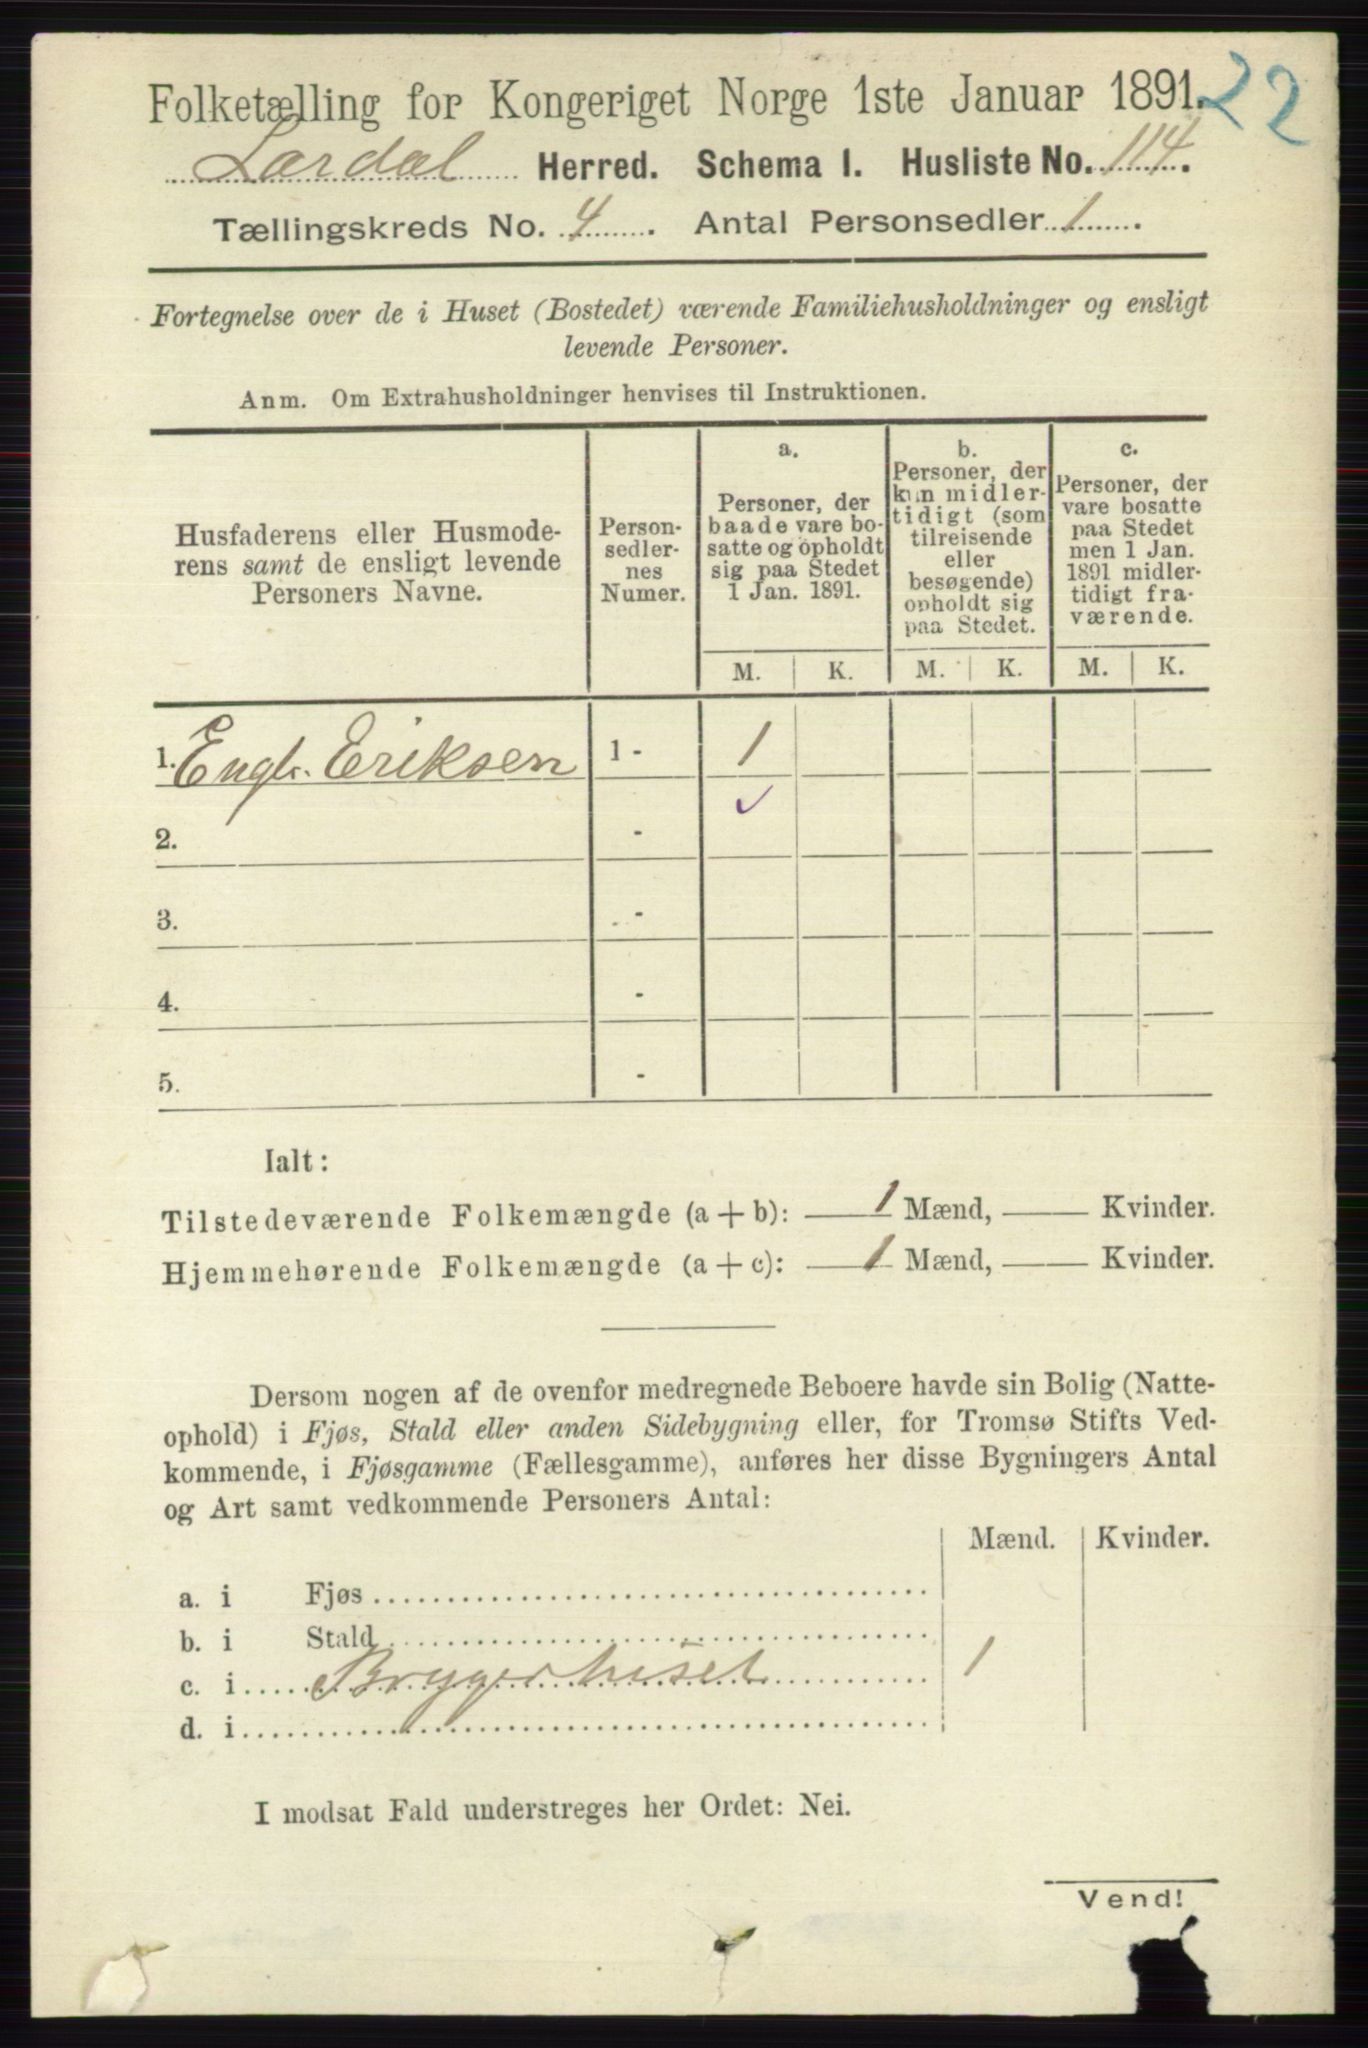 Folketælling for Kongeriget Norge 1ste Januar 1891.
22
Lardal Herred. Schema I. Husliste No. 114.
Tællingskreds No. 4. Antal Personsedler 1.
Fortegnelse over de i Huset (Bostedet) værende Familiehusholdninger og ensligt
levende Personer.
Anm. Om Extrahusholdninger henvises til Instruktionen.
Husfaderens eller Husmode-
rens samt de ensligt levende
Personers Navne.
Person-
sedler-
nes
Numer.
a.
Personer, der
baade vare bo-
satte og opholdt
sig paa Stedet
1 Jan. 1891.
b.
Personer, der
kun midler-
tidigt (som
tilreisende
eller
besøgende)
opholdt sig
paa Stedet.
c.
Personer, der
vare bosatte
paa Stedet
men 1 Jan.
1891 midler-
tidigt fra-
værende.
M. K. M. K. M. K.
1. Engb. Eriksen 1 - 1
2. -
3. -
4. -
5. -
Ialt:
Tilstedeværende Folkemængde (a + b): 1 Mænd, — Kvinder.
Hjemmehørende Folkemængde (a + c): 1 Mænd, — Kvinder.
Dersom nogen af de ovenfor medregnede Beboere havde sin Bolig (Natte-
ophold) i Fjøs, Stald eller anden Sidebygning eller, for Tromsø Stifts Ved-
kommende, i Fjøsgamme (Fællesgamme), anføres her disse Bygningers Antal
og Art samt vedkommende Personers Antal:
Mænd. Kvinder.
a. i Fjøs
b. i Stald
c. i Bryggerhuset 1
d. i
I modsat Fald understreges her Ordet: Nei.
Vend!